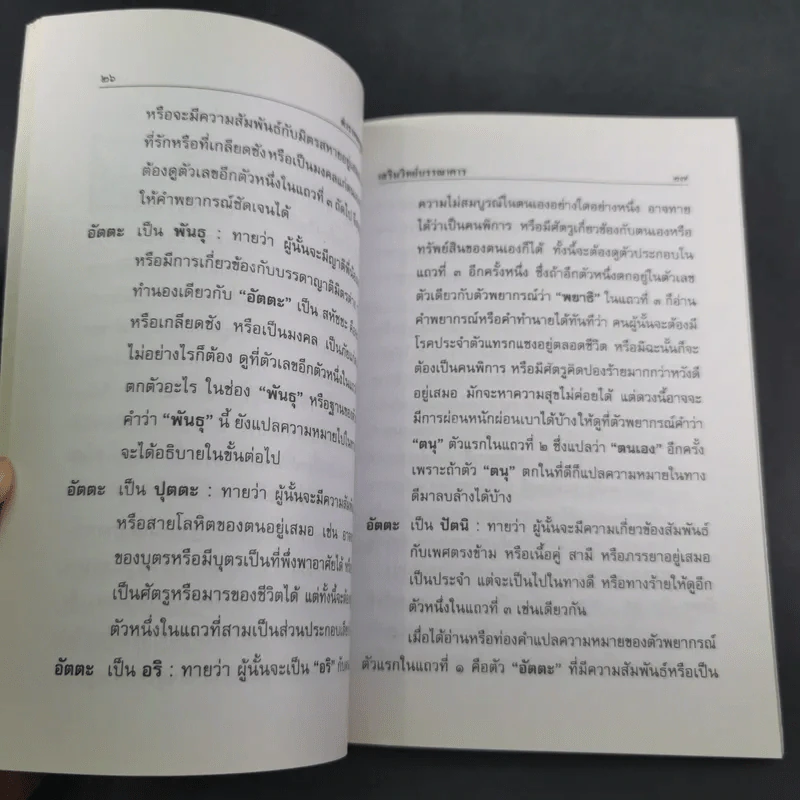 ๒๖
หรือจะมีความสัมพันธ์กับมิตรสหายอยู่
ที่รักหรือที่เกลียดชัง หรือเป็นมงคลแก่
ต้องดูตัวเลขอีกตัวหนึ่งในแถวที่ ๓ ถัดไป
ให้คำพยากรณ์ชัดเจนได้
อัตตะ เป็น พันธุ : ทายว่า ผู้นั้นจะมีญาติ
หรือมีการเกี่ยวข้องกับบรรดาญาติมิตร
ทำนองเดียวกับ “อัตตะ” เป็น สหัชชะ
หรือเกลียดชัง หรือเป็นมงคล เป็นภัย
ไม่อย่างไรก็ต้อง ดูที่ตัวเลขอีกตัวหนึ่งใน
ตกตัวอะไร ในช่อง “พันธุ” หรือฐานของ
คำว่า “พันธุ” นี้ ยังแปลความหมายไปใน
จะได้อธิบายในขั้นต่อไป
อัตตะ เป็น ปุตตะ : ทายว่า ผู้นั้นจะมีความ
หรือสายโลหิตของตนอยู่เสมอ เช่น
ของบุตรหรือมีบุตรเป็นที่พึ่งพาอาศัยได้
เป็นศัตรูหรือมารของชีวิตได้ แต่ทั้งนี้จะ
ตัวหนึ่งในแถวที่สามเป็นส่วนประกอบ
อัตตะ เป็น อริ : ทายว่า ผู้นั้นจะเป็น “อริ”
เสริมวิทย์บรรณาคาร ๒๗
ความไม่สมบูรณ์ในตนเองอย่างใดอย่างหนึ่ง อาจทาย
ได้ว่าเป็นคนพิการ หรือมีศัตรูเกี่ยวข้องกับตนเองหรือ
ทรัพย์สินของตนเองก็ได้ ทั้งนี้จะต้องดูตัวประกอบใน
แถวที่ ๓ อีกครั้งหนึ่ง ซึ่งถ้าอีกตัวหนึ่งตกอยู่ในตัวเลข
ตัวเดียวกับตัวพยากรณ์ว่า “พยาธิ” ในแถวที่ ๓ ก็อ่าน
คำพยากรณ์หรือคำทำนายได้ทันทีว่า คนผู้นั้นจะต้องมี
โรคประจำตัวแทรกแซงอยู่ตลอดชีวิต หรือมิฉะนั้นก็จะ
ต้องเป็นคนพิการ หรือมีศัตรูคิดปองร้ายมากกว่าหวังดี
อยู่เสมอ มักจะหาความสุขไม่ค่อยได้ แต่ดวงนี้อาจจะ
มีการผ่อนหนักผ่อนเบาได้บ้างให้ดูที่ตัวพยากรณ์คำว่า
“ตนุ” ตัวแรกในแถวที่ ๒ ซึ่งแปลว่า “ตนเอง” อีกครั้ง
เพราะถ้าตัว “ตนุ” ตกในที่ดีก็แปลความหมายในทาง
ดีมาลบล้างได้บ้าง
อัตตะ เป็น ปัตนิ : ทายว่า ผู้นั้นจะมีความเกี่ยวข้องสัมพันธ์
กับเพศตรงข้าม หรือเนื้อคู่ สามี หรือภรรยาอยู่เสมอ
เป็นประจำ แต่จะเป็นไปในทางดี หรือทางร้ายให้ดูอีก
ตัวหนึ่งในแถวที่ ๓ เช่นเดียวกัน
เมื่อได้อ่านหรือท่องคำแปลความหมายของตัวพยากรณ์
ตัวแรกในแถวที่ ๑ คือตัว “อัตตะ” ที่มีความสัมพันธ์หรือเป็น